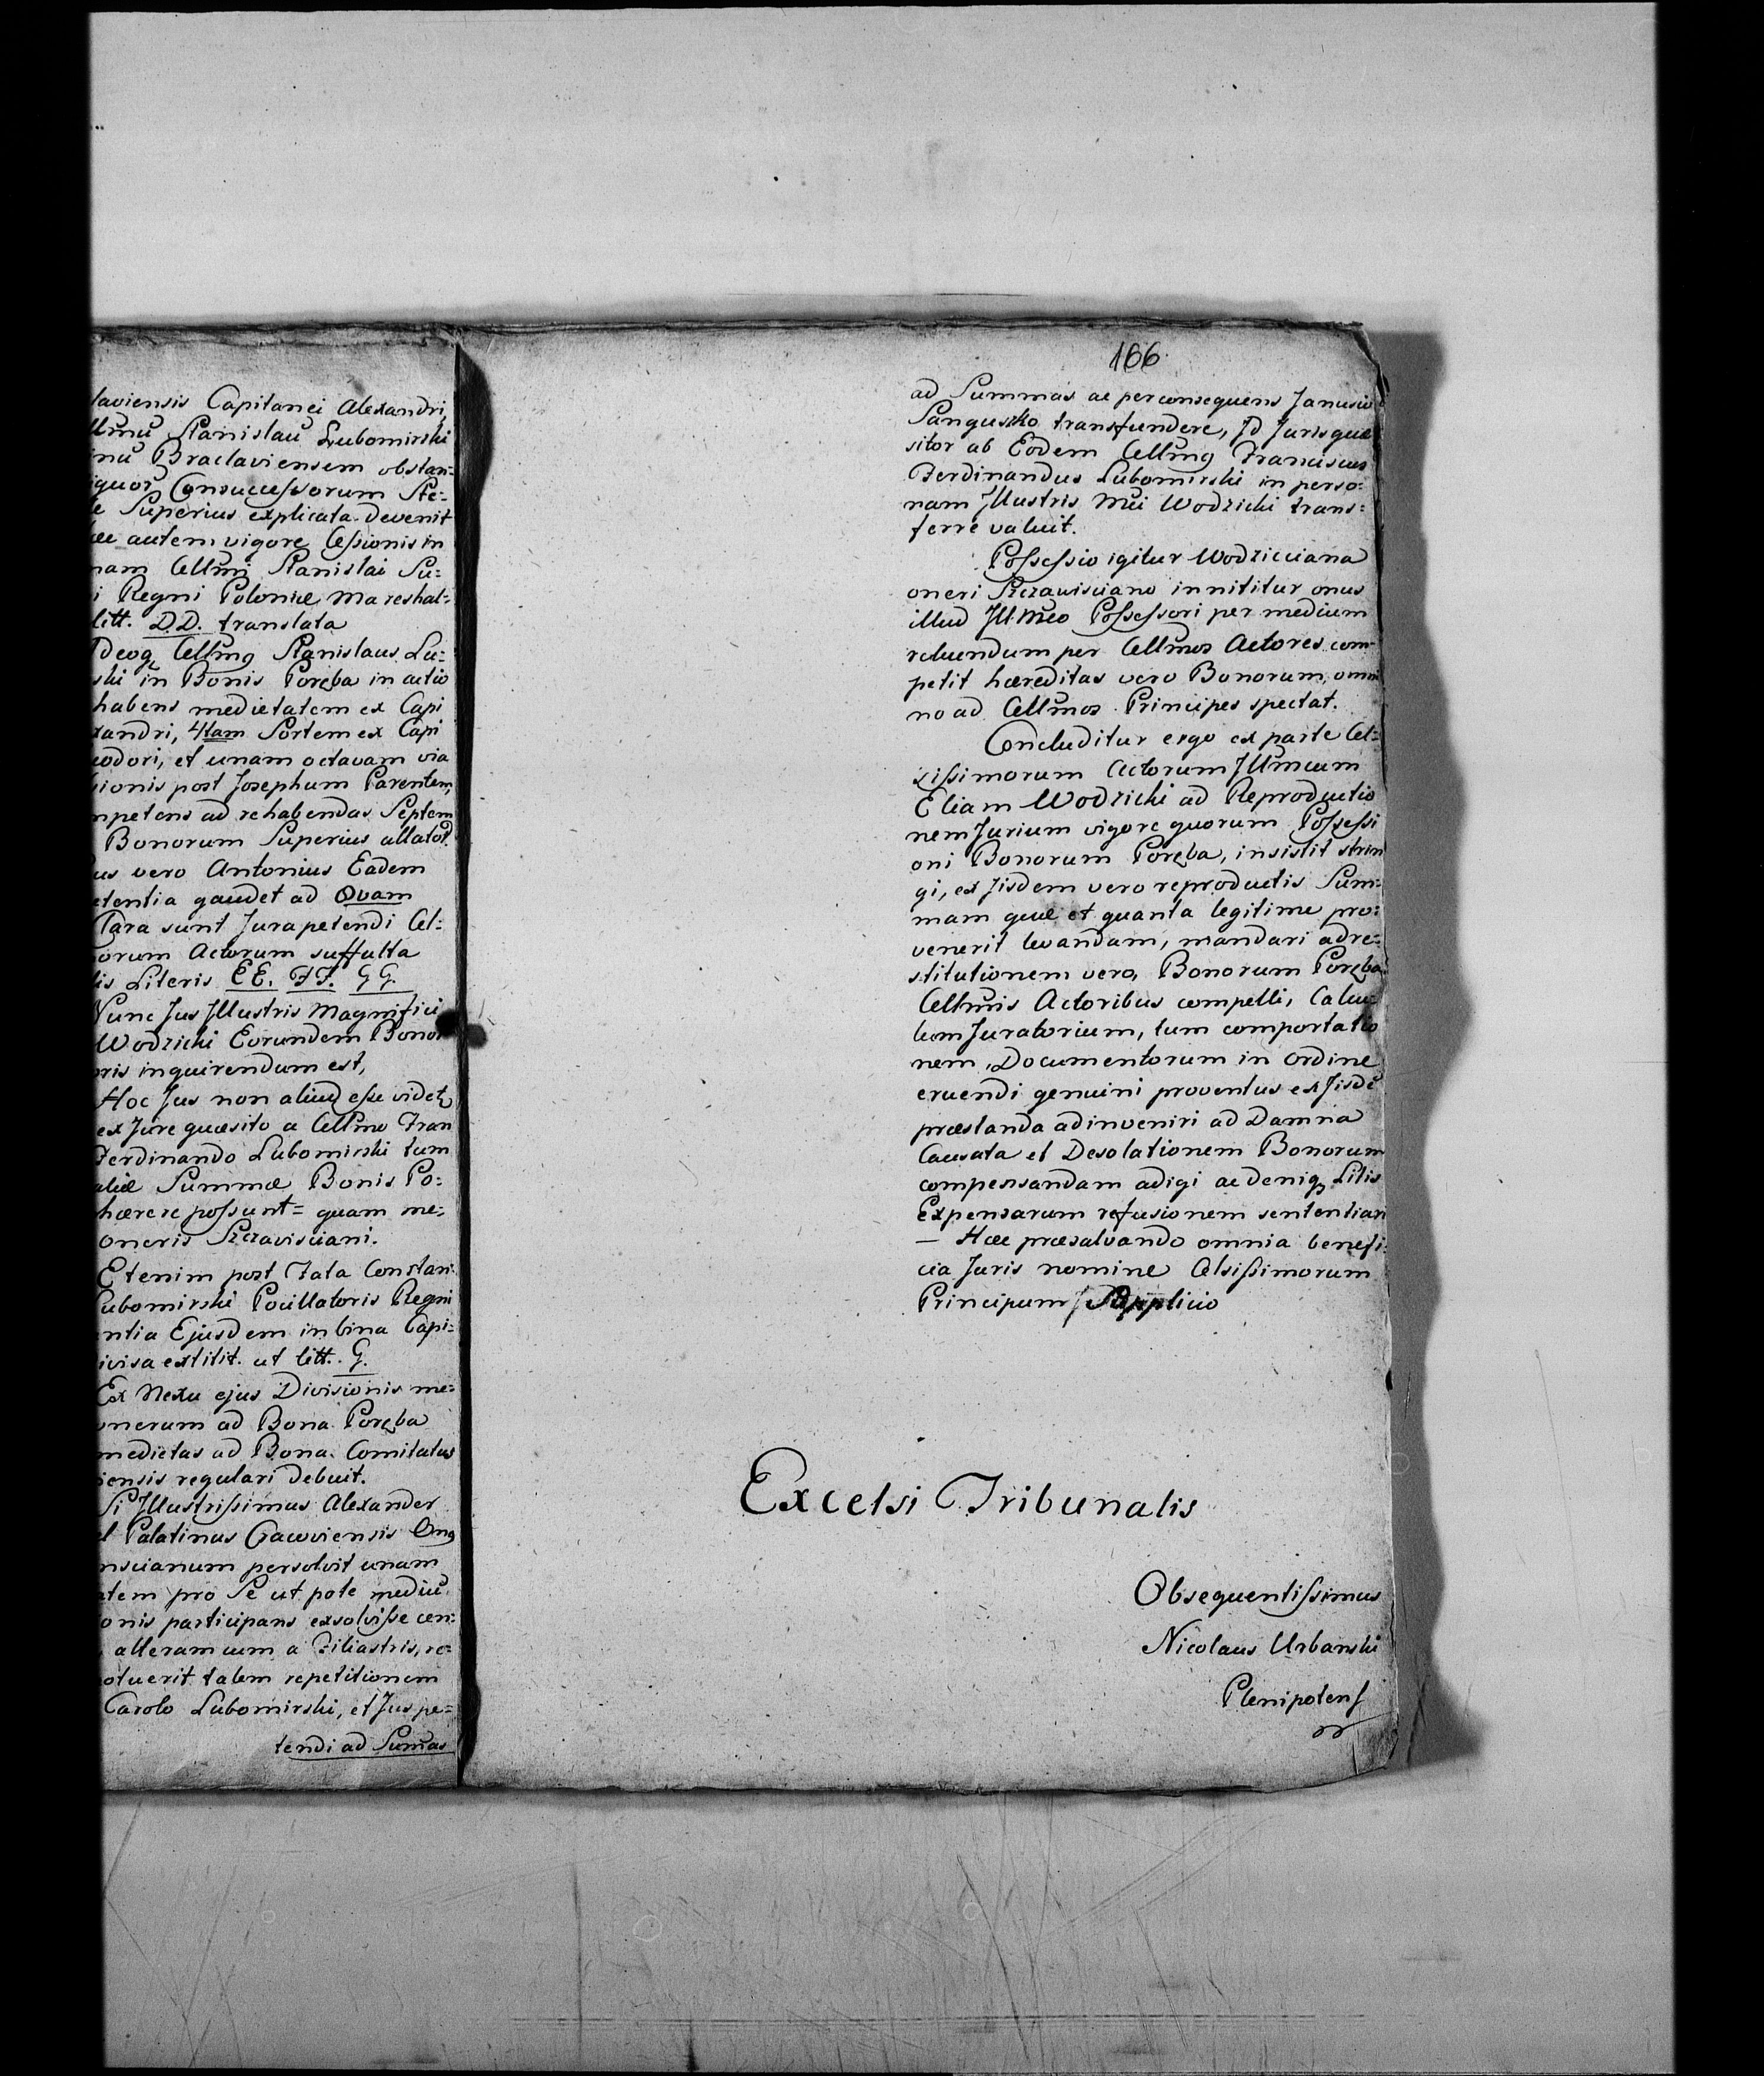 laviensis Capitanei Alexandri,
Stanislaū Lubomirski
Braclaviensem obstan=
Consuccessorum Ste=
Superius explicata devenit
autem vigore Cessionis in
nam Cellmi Stanislai Lu=
i Regni Poloniæ Mareshal=
litt. D.D. translata
Cellmg Stanislaus Lu=
ski in Bonis Poręba in actio
habens medietatem ex Capi
xandri, 4tam Sortem ex Capi
eodori, et unam octavam via
sionis post Josephum Parentem,
mpetens ad rehabendas Septem
Bonorum Superius allator
us vero Antonius Eadem
etentia gaudet ad Qvam
Clara sunt Jura petendi Cel=
orum Actorum suffulta
lis Literis EE. FF. GG.
Nunc Jus Illustris Magnifici
Wodzicki Eorundem Bonor
oris inquirendum est,
Hoc Jus non aliud esse videt
ex Jure quæsito a Cellmo Fran
Ferdinando Lubomirski tum
aliæ Summæ Bonis Po=
hærere possunt= quam me=
oneris Szczawisciani.
Etenim post Fata Constan=
Lubomirski Pocillatoris Regni
entia Ejusdem in bina Capi=
ivisa extitit. ut litt. G.
Ex Nexu ejus Divisionis me=
onerum ad Bona Poręba
medietas ad Bona Comitatus
iensis regulari debuit.
Si Illustrissimus Alexander
el Palatinus Cracoviensis
nscianum persolvit unam
atem pro Se ut pote mediū
onis participans exsolvisse cen=
alteram cum a Filiastris, re=
otuerit talem repetitionem
Carolo Lubomirski, et Jus pe=
tendi ad Sumas
166.
ad Summas ac per consequens Janusio
Sangusko transfundere, Id Juris quæ
sitor ab Eodem Cellmg Franciscus
Ferdinandus Lubomirski in perso=
nam Illustris Mci Wodzicki trans=
ferre valuit.
Possessio igitur Wodzicciana
oneri Szczawisciano innititur onus
illud Possessori per medium
reluendum per Cellmos Actores com=
petit hæreditas vero Bonorum, omni
no ad Cellmos Principes spectat.
Concluditur ergo ex parte Cel=
sissimorum Actorum Illmcum
Eliam Wodzicki ad Reproductio
nem Jurium vigore quorum Possessi
oni Bonorum Poręba, insistit strin
gi, ex Iisdem vero reproductis Sum=
mam quæ et quanta legitime pro=
venerit levandam, mandari ad re=
stitutionem vero, Bonorum Poręba
Cellmis Actoribus compelli, Calcu
lum Juratorium, tum comportatio
nem, Documentorum in Ordine
eruendi genuini proventus ex Iisdē
præstanda adinveniri ad Damna
Causata et Desolationem Bonorum
compensandam adigi ac deniq Litis
Expensarum refusionem sententiari
— Hæc præsalvando omnia benefi=
cia Juris nomine Celsissimorum
Principum Supplico
Excelsi Tribunalis
Obsequentissimus
Nicolaus Urbanski
Plenipotens